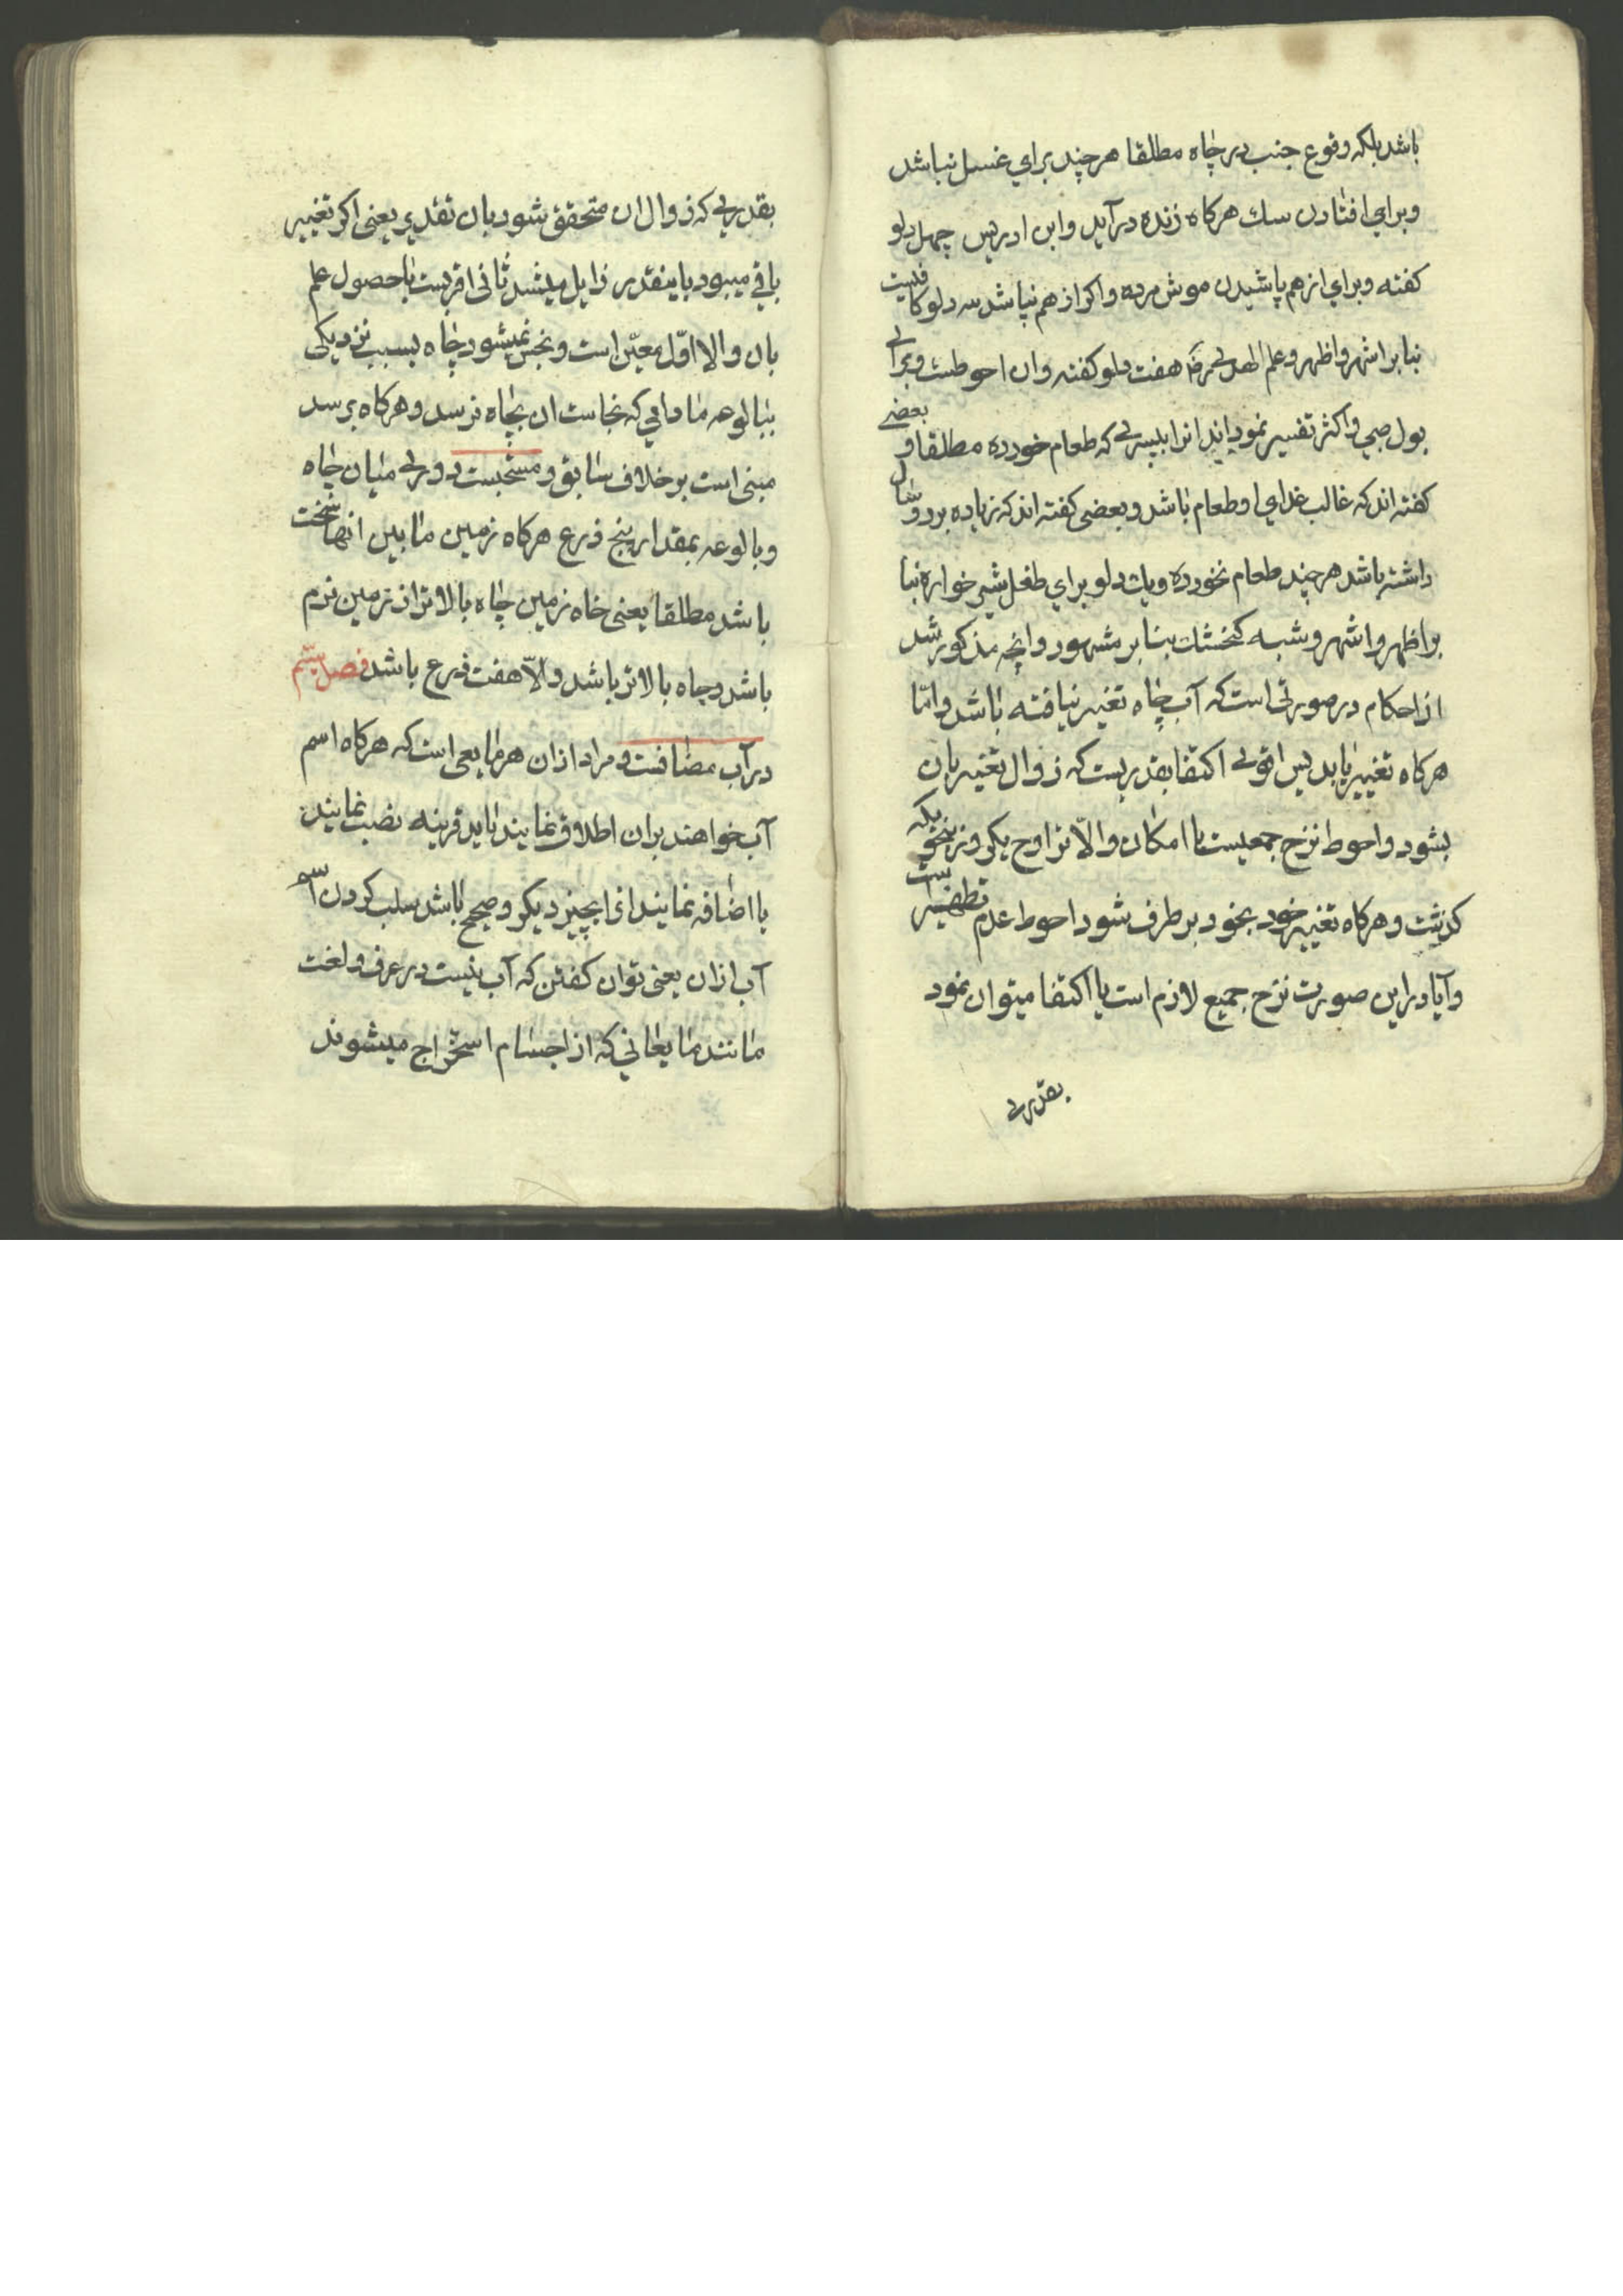 باشد بلکه وقوع جنب در چاه مطلقا هرچند برای غسل نباشد
وبرای افتادن سك هرکاه زنده درآید وابن ادریس چهل دلو
کفته وبرای ازهم پاشیدن موش مرده واکر ازهم نپاشد سه دلو کافیست
بنا بر اشهر واظهر وعلم الهدی هفت دلو کفته وان احوطست وبرای
بول صبی واکثر تفسیر نموده‌اند انرا بپسری که طعام خورده مطلقا وبعضی
کفته اند که غالب غذای او طعام باشد وبعضی کفته اند که زیاده بر دو سال
داشته باشد هرچند طعام نخورده ویك دلو برای طفل شیر خواره بنا
بر اظهر واشهر وشبه کنجشك بنا بر مشهور وانچه مذکور شد
از احکام در صورتی است که آب چاه تغییر نیافته باشد واما
هرکاه تغییر یابد پس اقوی اکتفا بقدریست که زوال تغییر بان
بشود واحوط نزح جمیعست با امکان والّا تراوح یکروز بنحویکه
کذشت وهرکاه تغییر خود بخود برطرف شود احوط عدم تطهیر است
وآیا در این صورت نزح جمیع لازم است یا اکتفا میتوان نمود
بقدری
بقدری که زوال ان متحقق شود بان تقدیر یعنی اکر تغییر
باقی میبود باینقدر زایل میشد ثانی اقربست با حصول علم
بان والا اوّل معیّن است ونجس نمیشود چاه بسبب نزدیکی
ببالوعه مادامی که نجاست ان بچاه نرسد وهرکاه برسد
مبنی است بر خلاف سابق ومستحبست دوری میان چاه
وبالوعه بمقدار پنج ذرع هرکاه زمین مابین انها سخت
باشد مطلقا یعنی خاه زمین چاه بالاتر از زمین نرم
باشد وچاه بالاتر باشد والّا هفت ذرع باشد فصل سیّم
در آب مضافست ومراد ازان هر مایعی است که هرکاه اسم
آب خواهند بران اطلاق نمایند باید قرینه نصب نمایند
یا اضافه نمایند انرا بچیز دیکر وصحیح باشد سلب کردن اسم
آب ازان یعنی توان کفتن که آب نیست در عرف ولغت
مانند مایعاتی که از اجسام استخراج میشوند